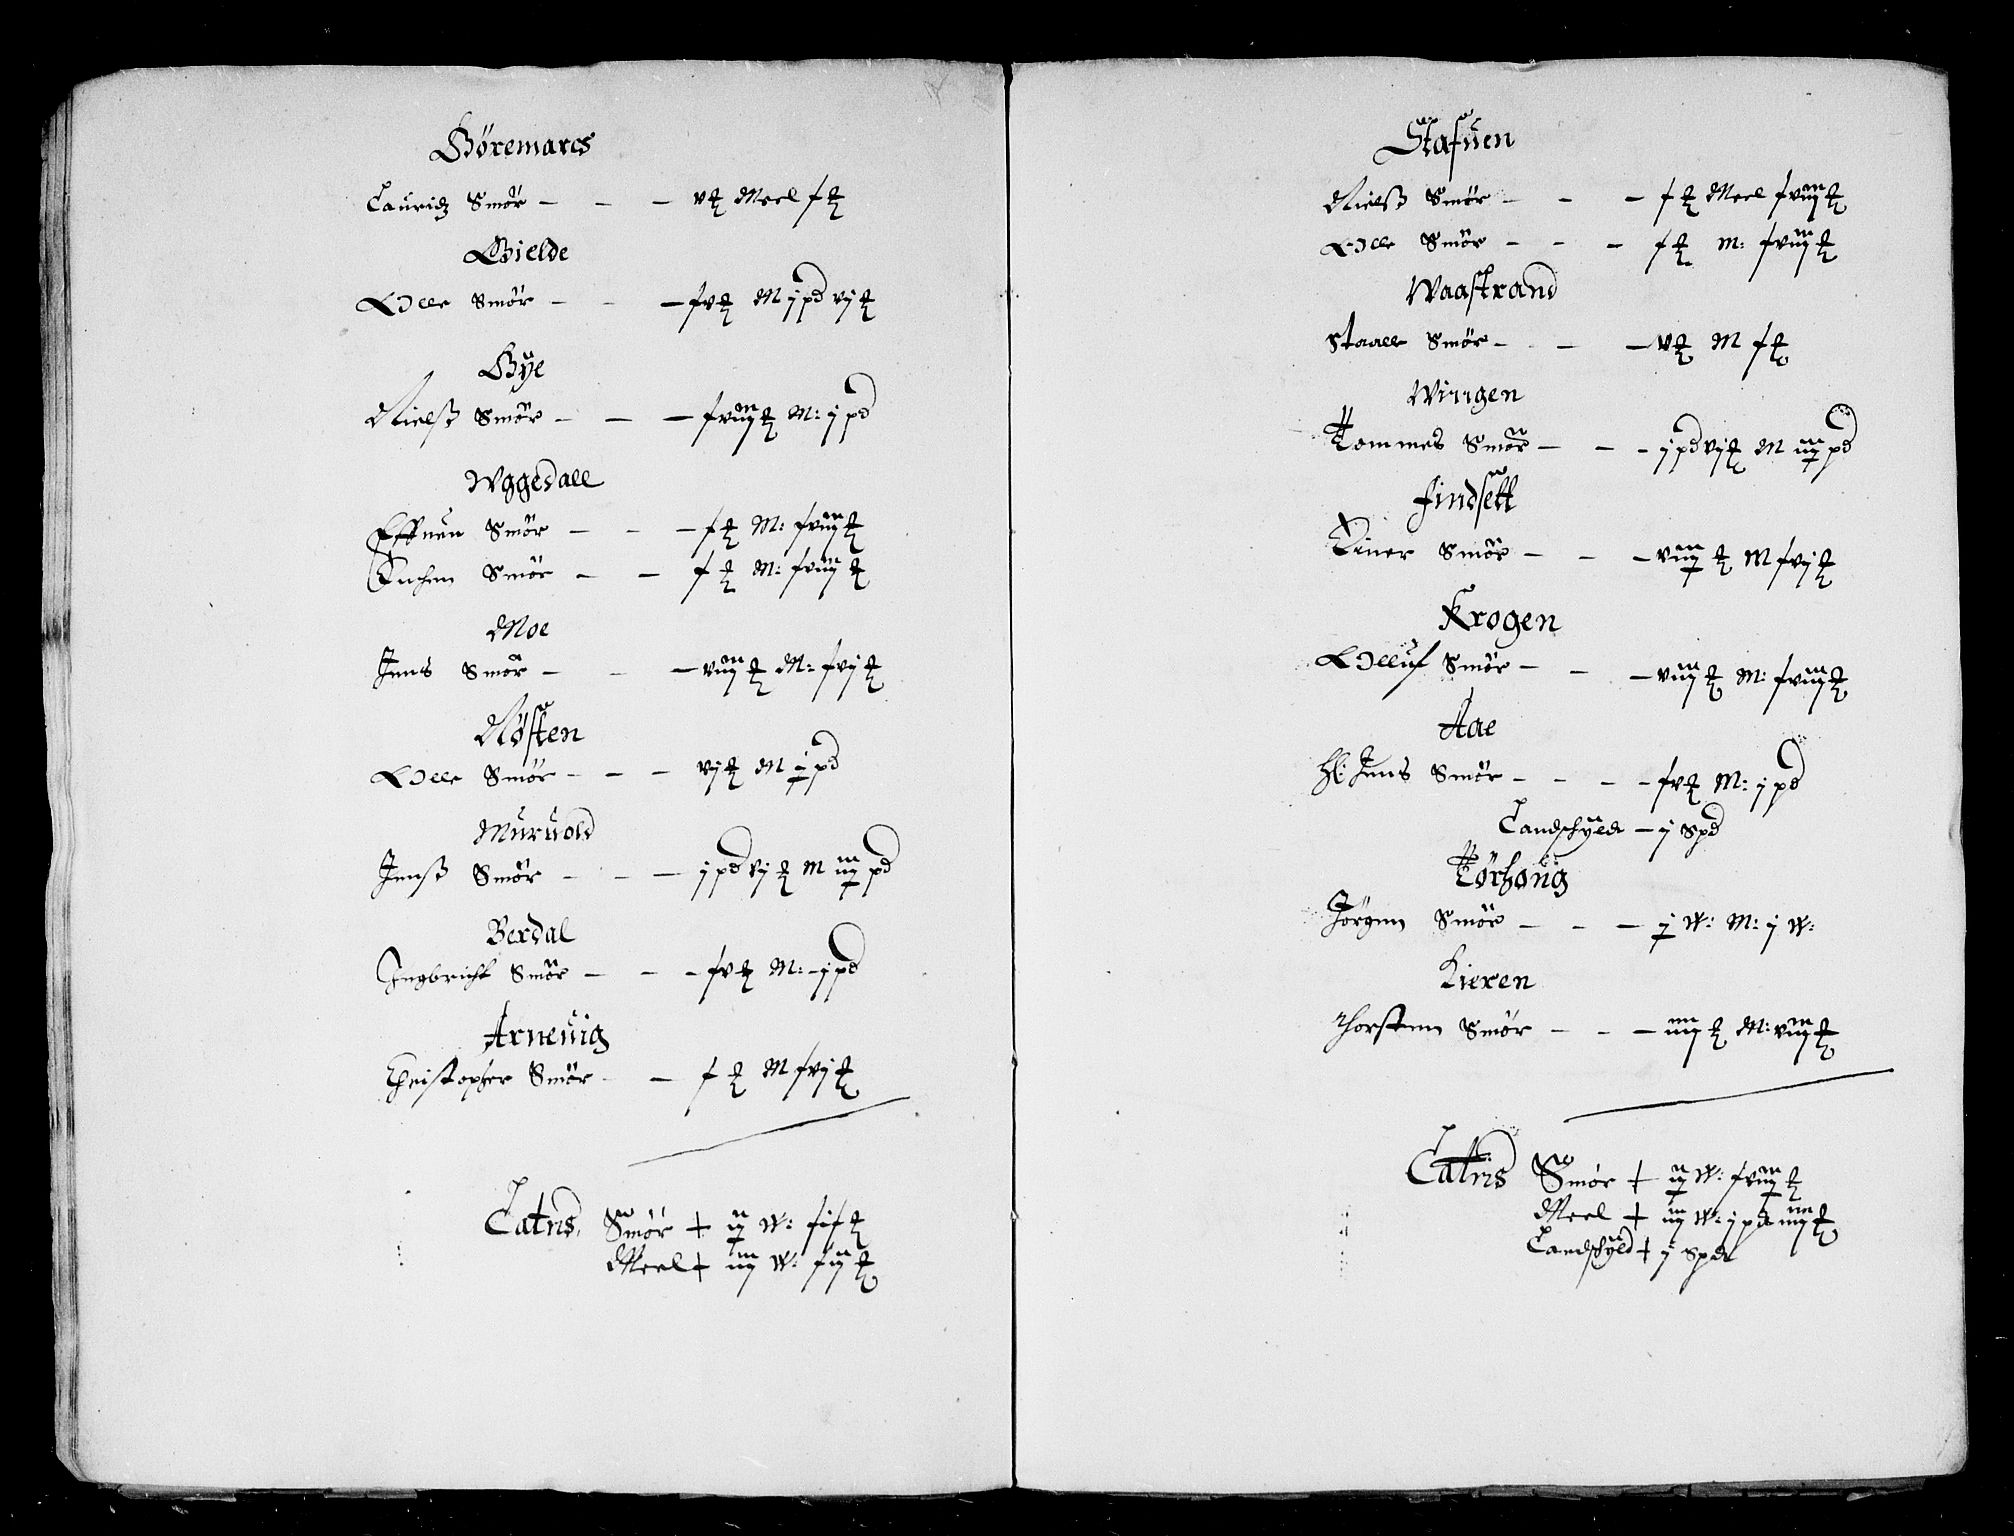 Göremarcs
Lauridz Smör – – – v ℔ Meel x ℔
Gielde
Olle Smör – – – xv ℔ M j pd vj ℔
Bÿe
Nielß Smör – – – xviij ℔ M: j pd
Wggedall
Smör – – – x ℔ M: xviij ℔
Smör – – x ℔ M: xviij ℔
Moe
Jens Smör – – – viij ℔ M: xvj ℔
Nösten
Olle Smör – – – vj ℔ M j pd
Muruold
Jenß Smör – – – j pd vj ℔ M iij pd
Berdal
Ingbricht Smör – – – xv ℔ M: j pd
Arneuig
Christopher Smör – – x ℔ M xvj ℔
Latris, Smör + ij W: xix ℔
Meel + iij W: xij ℔
Stafuen
Nielß Smör – – – x ℔ Meel xviij ℔
Olle Smör – – – x ℔ M: xviij ℔
Waastrand
Staale Smör – – – v ℔ M x ℔
Wiigen
Tommes Smör – – – j pd vj ℔ M iij pd
Findsett
Einer Smör – – – viij ℔ M xvj ℔
Krogen
Olluf Smör – – – viij ℔ M: xviij ℔
Aae
Hr: Jens Smör – – – – xv ℔ M: j pd
Landschyld – j Spd
Törhöng
Jörgen Smör – – – j W: M: j W:
Lieren
Thorsten Smör – – – iiij ℔ M: viij ℔
Latris Smör + ij W: xviij ℔
Meel + iij W: j pd iiij ℔
Landschyld + j Spd